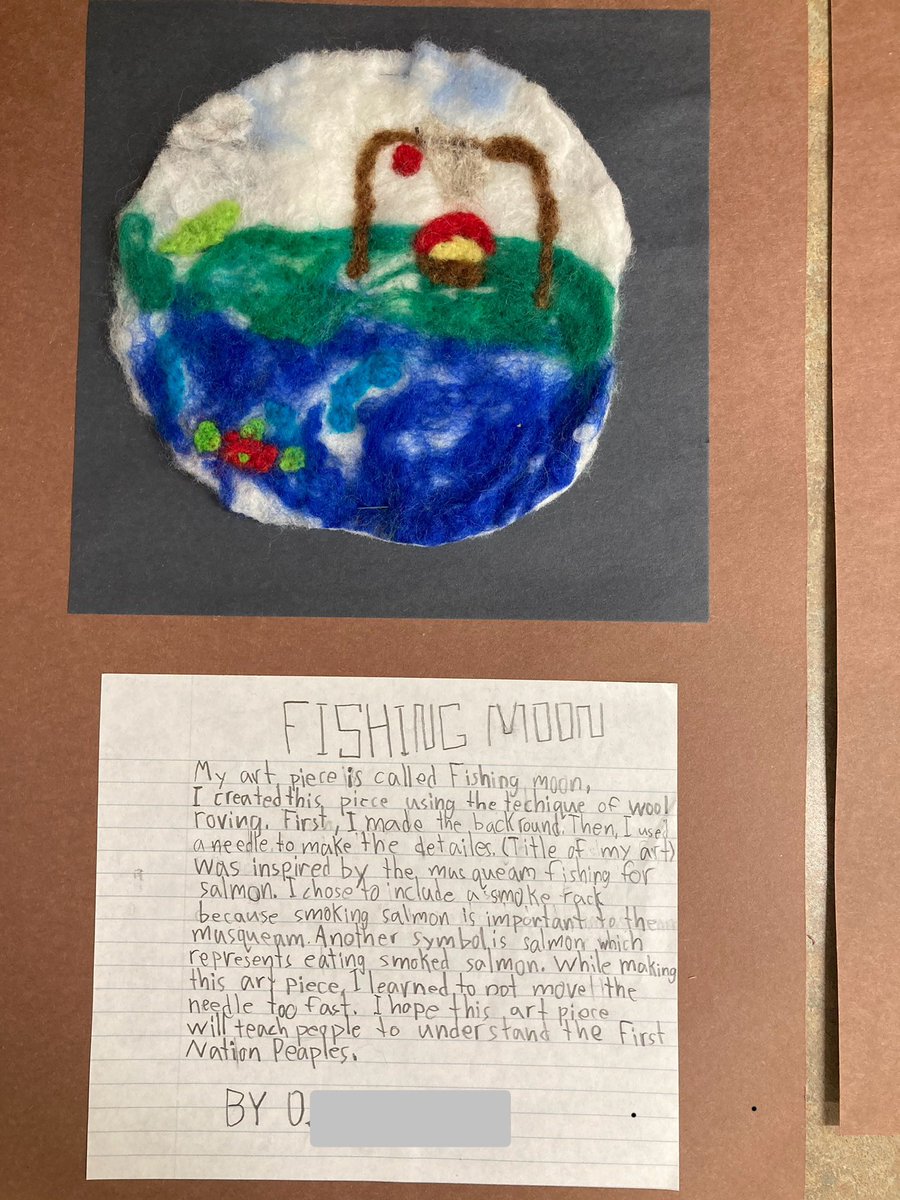 FISHING MOON
My art piece is called Fishing moon,
I created this piece using the techique of wool
roving. First, I made the backround. Then, I used
a needle to make the detailes. (Title of my art)
was inspired by the musqueam fishing for
salmon. I chose to include a smoke rack
because smoking salmon is important to them
musqueam. Another symbol is salmon which
represents eating smoked salmon. While making
this art piece, I learned to not move the
needle too fast. I hope this art piece
will teach people to understand the First
Nation Peaples.
BY O.